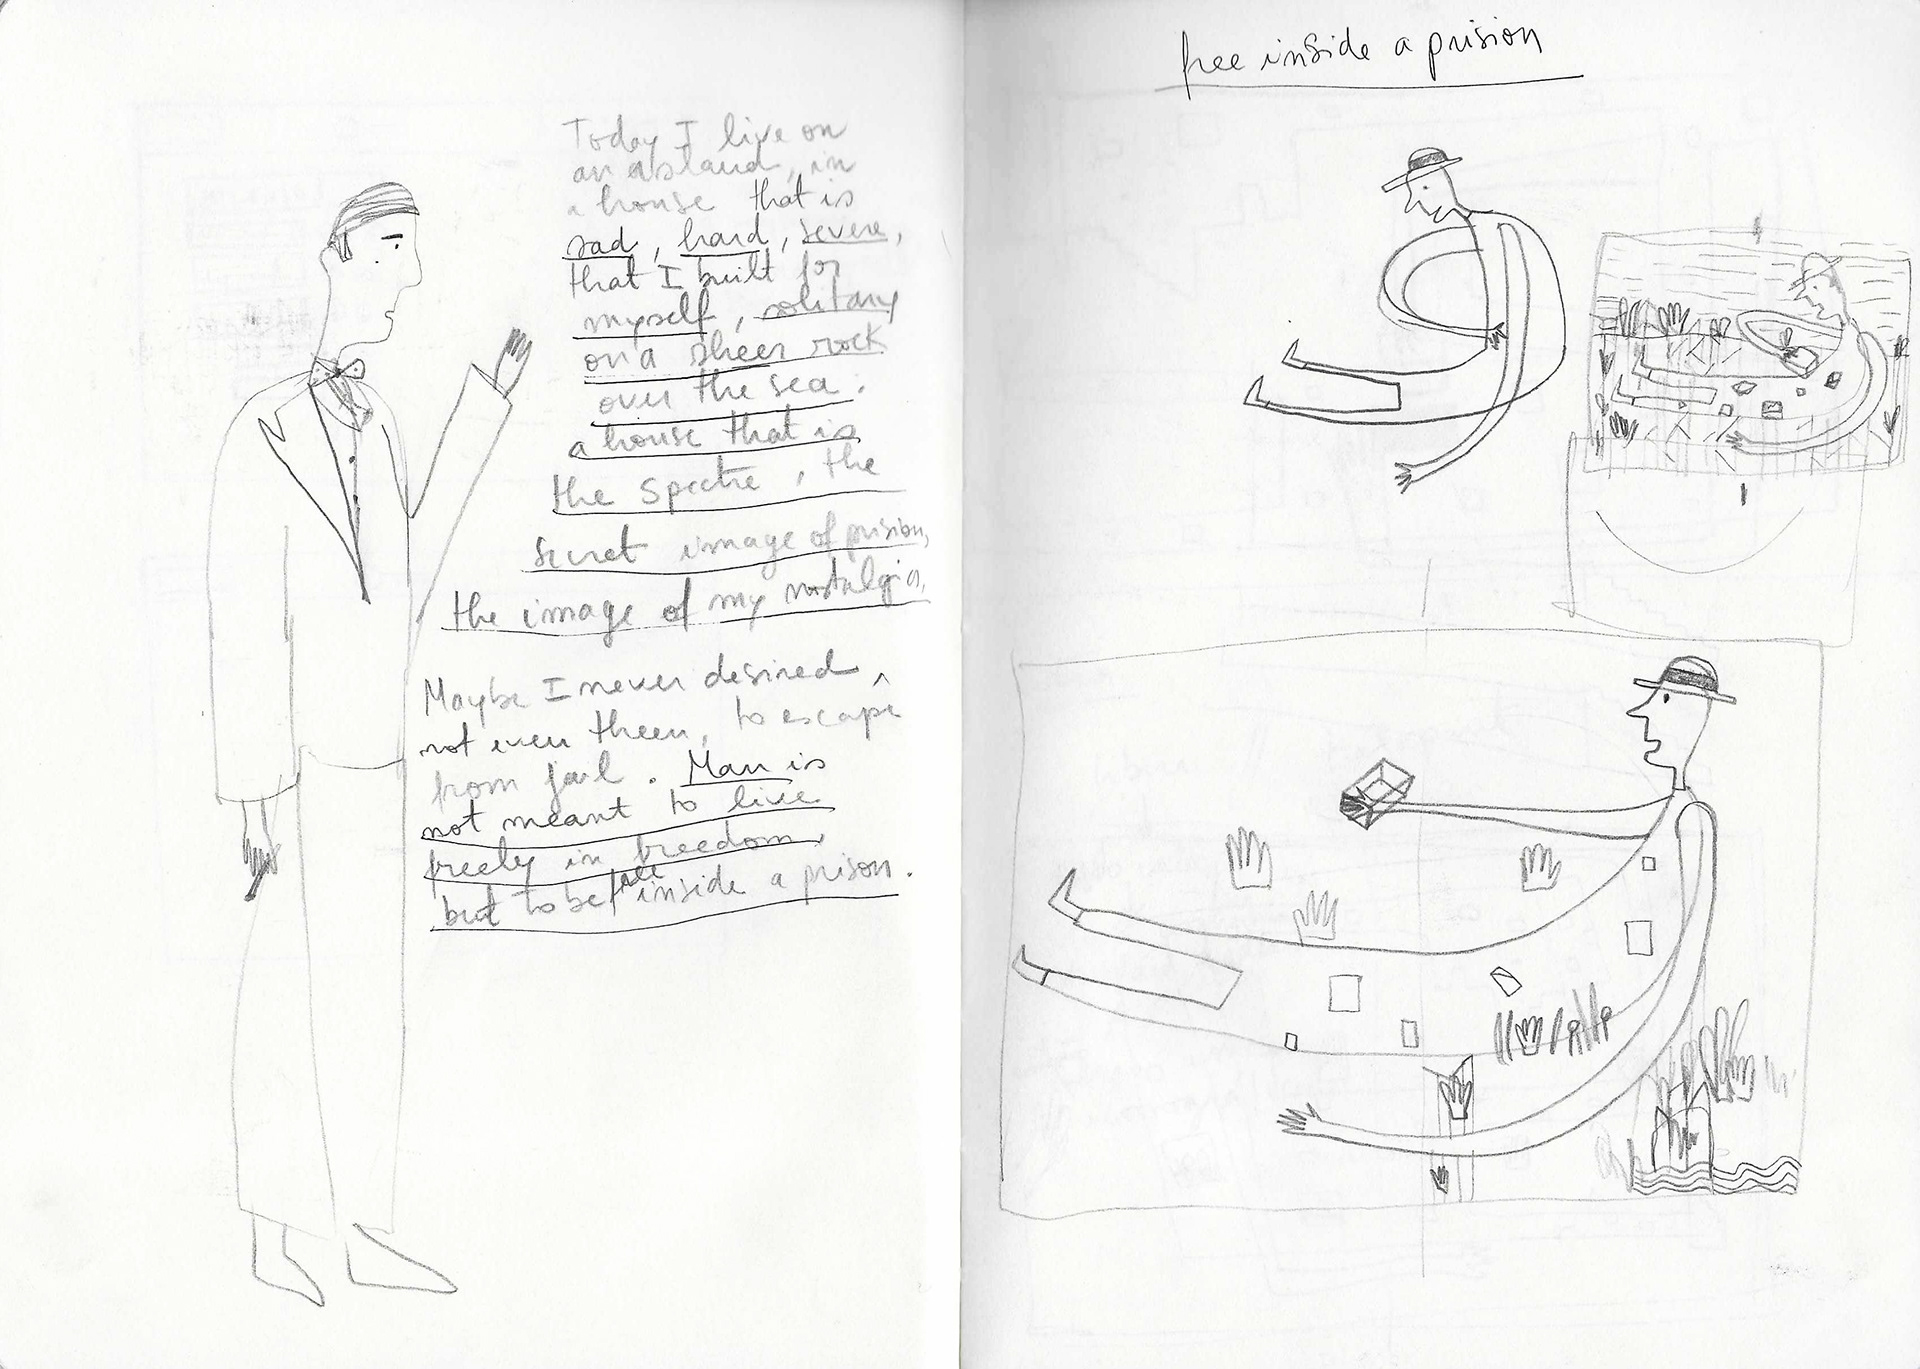 Today I live on
an astland, in
a house that is
sad, hard, severe,
that I built for
myself, solitary
on a sheer rock
over the sea:
a house that is
the spectre, the
secret image of prision,
the image of my nostalgia.
Maybe I never desired,
not even theen, to escape
from jail. Man is
not meant to live
freely in freedom,
but to be free inside a prison.
free inside a prision